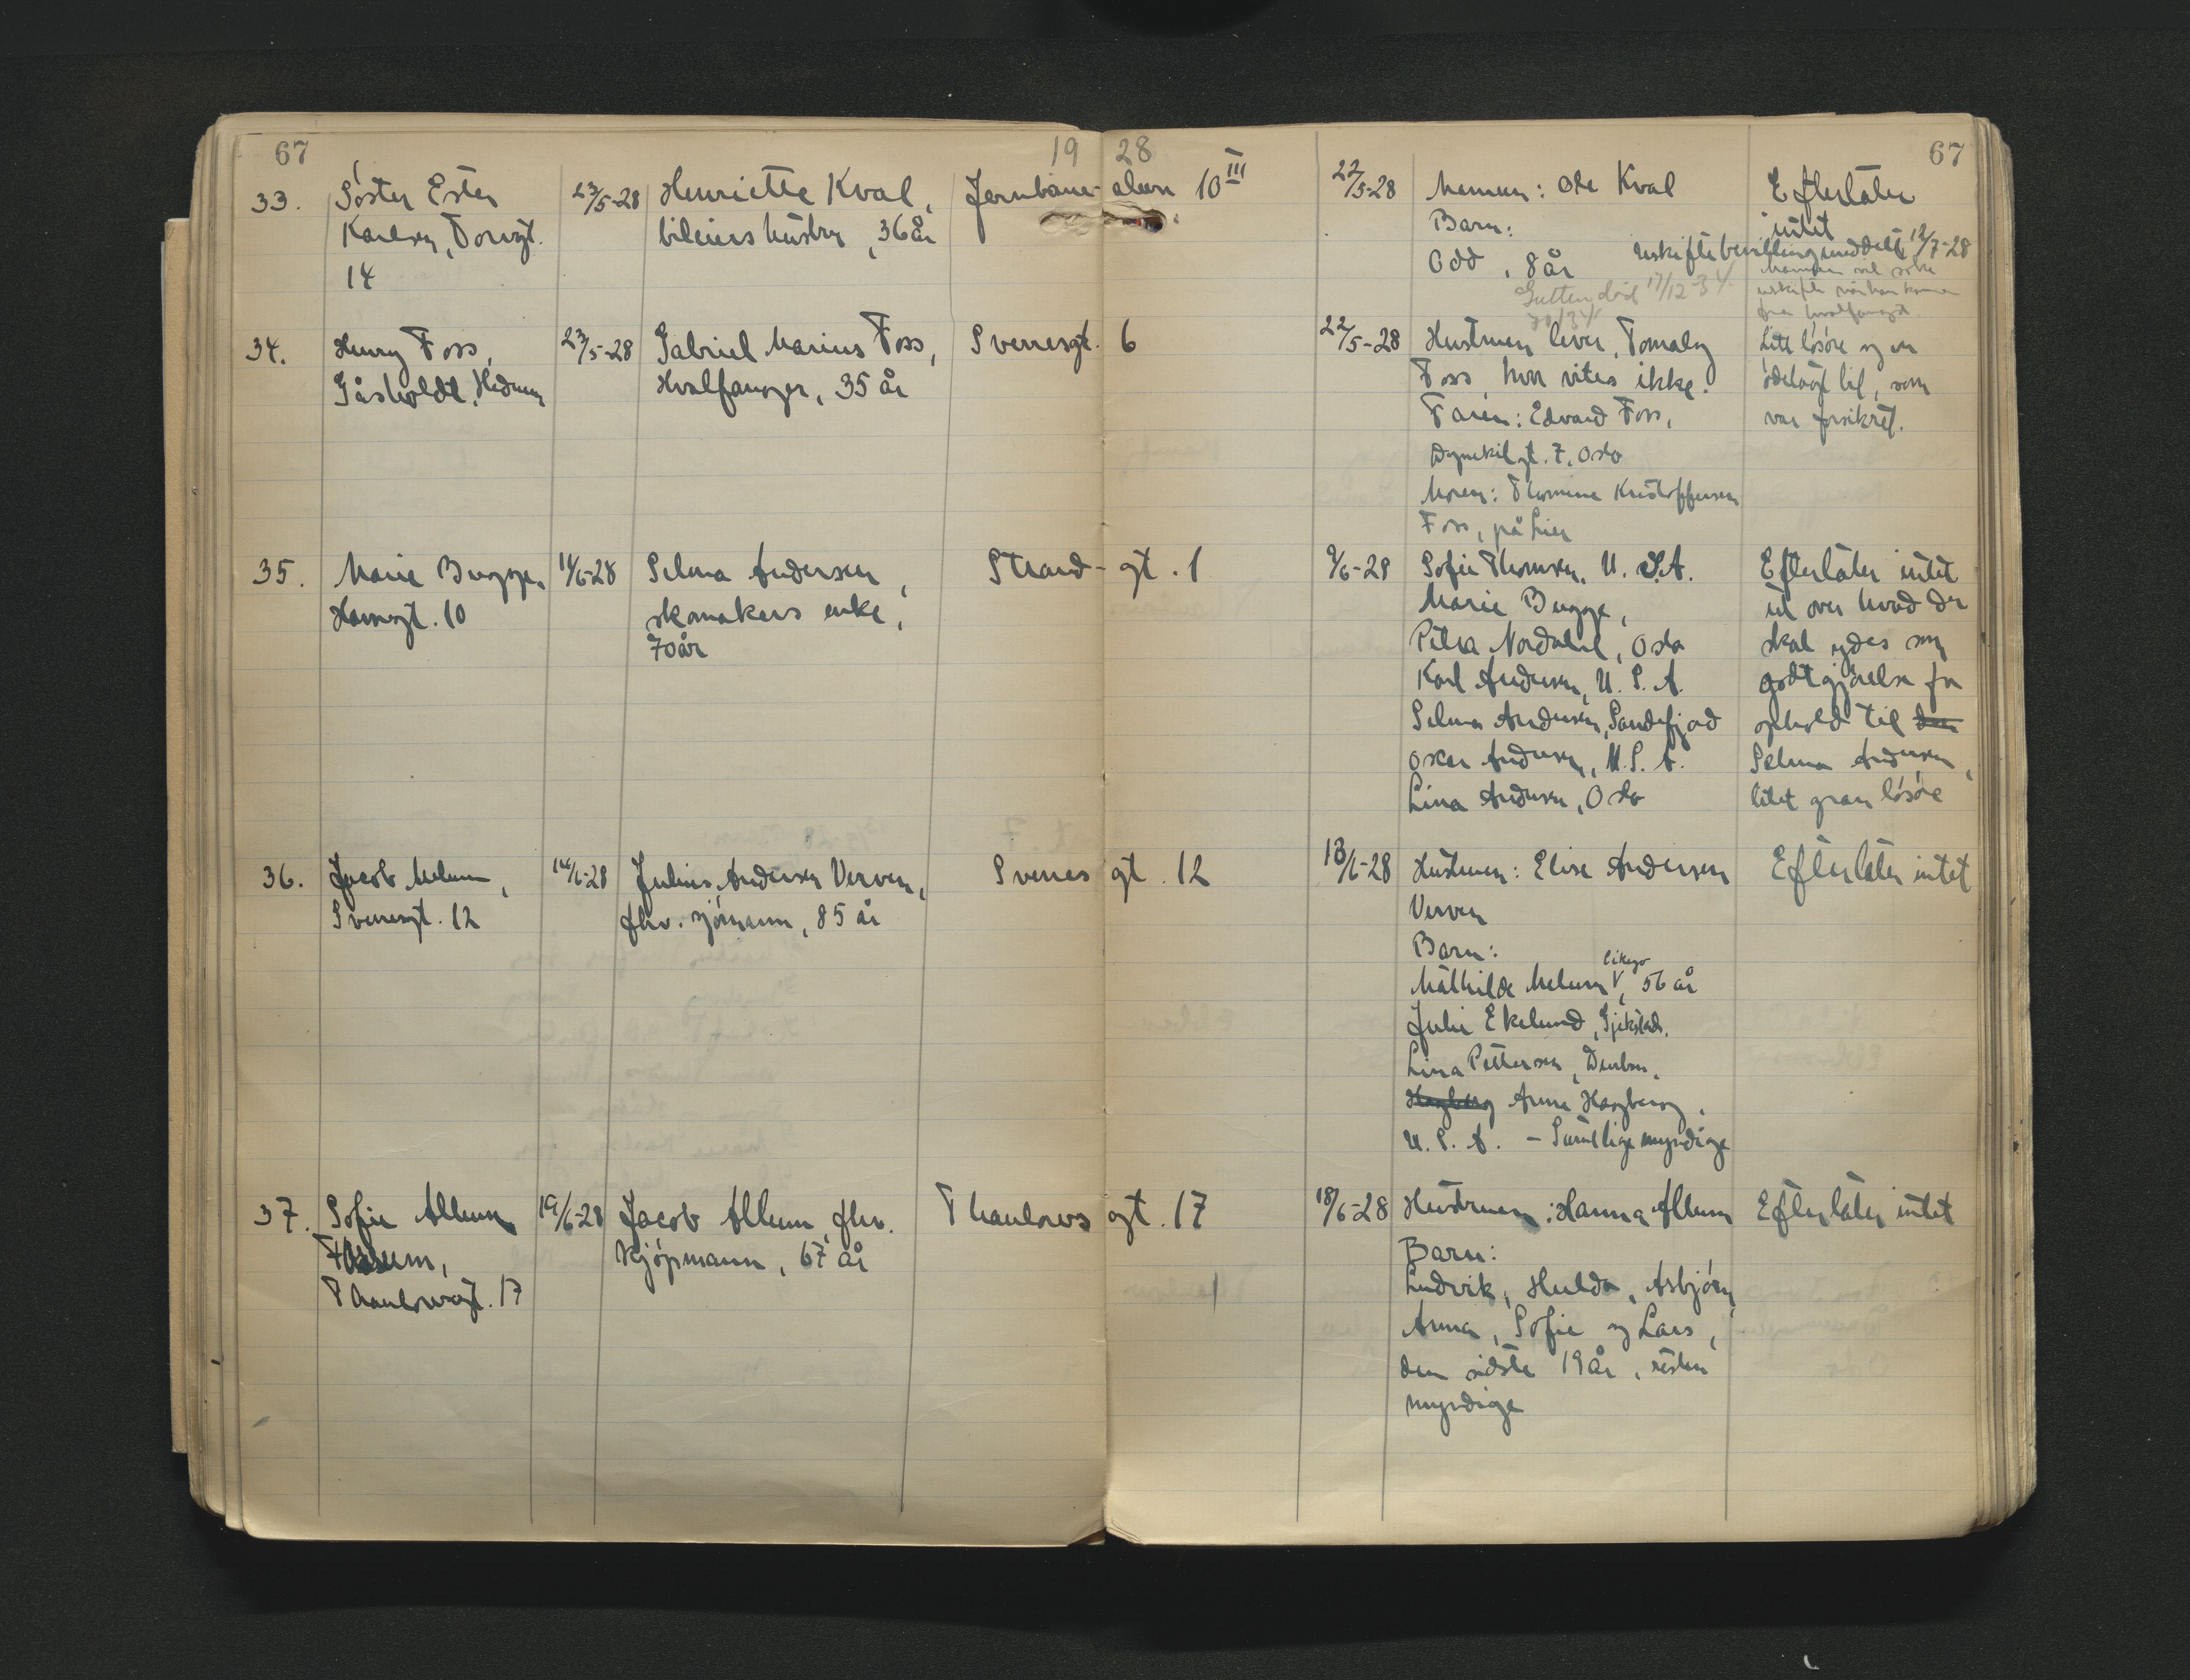 67
19 28
67
33.
Søster Ester
Karlsen, Torvgt.
14
23/5-28
Henriette Kval,
bileiers hustru, 36 år
Jernbane- aleen 10 III
22/5-28
Mannen: Ole Kval
Barn:
Odd, 8 år
Gutten død 17/12-34
Efterlater
intet
Uskiftebevilling meddelt 12/7-28
Mannen vil søke
uskifte når han kommer
fra hvalfangst.
34.
Henry Foss,
Gåsholdt, Hedrum
23/5-28
Gabriel Marius Foss,
Hvalfanger, 35 år
Sverresgt. 6
22/5-28
Hustruen lever,
Foss, hvor vites ikke.
Faren: Edvard Foss,
Dynekilgt. 7, Oslo
Moren: Thomine Kristoffersen
Foss, på Lier
Litt løsøre og en
ødelagt bil, som
var forsikret.
35.
Marie Bugge,
Havnegt. 10
11/6-28
Selma Andersen,
skomakers enke,
70 år
Strand- gt. 1
9/6-28
Sofie Thomsen, U.S.A.
Marie Bugge,
Petra Nordahl, Oslo
Karl Andersen, U.S.A.
Selma Andersen, Sandefjord
Oskar Andersen, U.S.A.
Lina Andersen, Oslo
Efterlater intet
ut over hvad der
skal ydes som
godtgjørelse for
ophold til den
Selma Andersen,
litet gran løsøre
36.
Jacob Melum,
Sverresgt. 12
14/6-28
Julius Andersen Verven,
fhv. sjømann, 85 år
Sverres gt. 12
13/6-28
Hustruen: Elise Andersen
Verven
Barn:
Mathilde Melum, 56 år
Julie Ekelund, Gjekstad.
Lina Pettersen, Durban.
Hagberg Anna Hagberg,
U.S.A. - Samtlige myndige
Efterlater intet
37.
Sofie Allum
Thaulowsgt. 17
19/6-28
Jacob Allum, fhv.
Kjøpmann, 67 år
Thaulows gt. 17
18/6-28
Hustruen: Hanna Allum
Barn:
Ludvik, Hulda, Asbjørn,
Anna, Sofie og Lars,
den sidste 19 år, resten
myndige
Efterlater intet